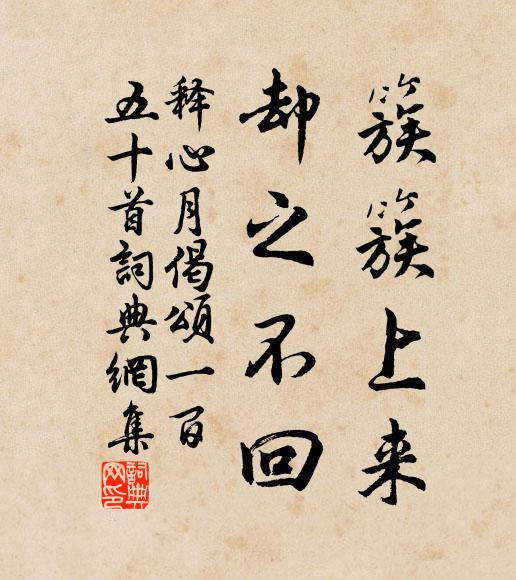 簇簇上来
却之不回
释心月偈頌一百
五十首詞典網集
詞典网印